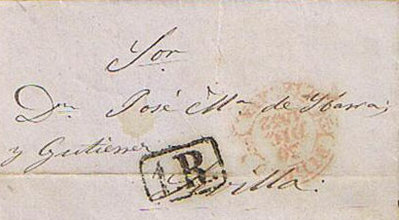 Sor
Dn José Ma de Ybarra,
y Gutierrez
1R.
Sevilla.